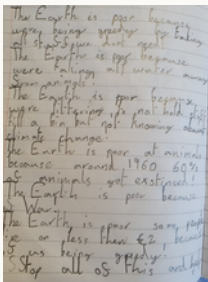 The Earth is poor because
were being greedy for taking
all stuff we dont need.
The Earth is poor because
were taking all water away
from animals.
The Earth is poor because
were littering, do not hold
till a bin but not knowing about
climate change.
the Earth is poor at animals
because around 1960 60%
of animals got extinsed!
The Earth is poor because
of War.
The Earth is poor some people
or less then €2, because
of us being greedy.
Stop all of this and